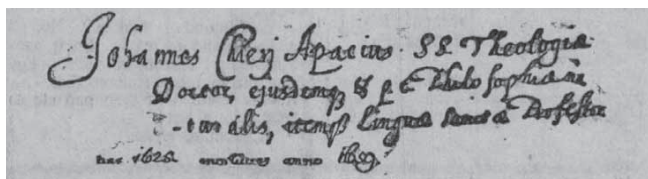 Johannes Cseri Apacius. SS Theologiæ
Doctor, ejusdemq; & Philosophiæ na
-turalis, itemq; Linguæ Sanctæ Professor
nat 1625. mortuus anno 1659.